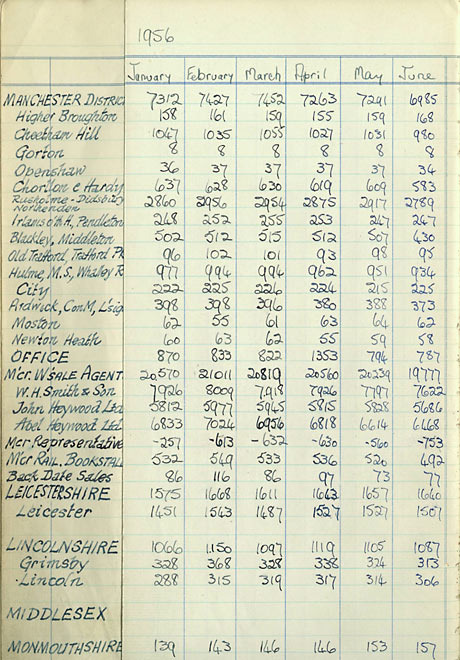 1956
January February March April May June
MANCHESTER DISTRIC 7312 7427 7452 7263 7291 6985
Higher Broughton 158 161 159 155 159 168
Cheetham Hill 1047 1035 1055 1027 1031 980
Gorton 8 8 8 8 8 8
Openshaw 36 37 37 37 37 34
Chorlton & Hardy 637 628 630 619 609 583
Rusholme - Didsbury
Northenden 2860 2956 2954 2875 2917 2789
Irlams o'th H, Pendleton 248 252 255 253 247 247
Blackley, Middleton 502 512 515 512 507 430
Old Trafford, Trafford Pk 96 102 101 93 98 95
Hulme, M.S, Whalley R 977 994 994 962 951 934
City 222 225 226 224 215 225
Ardwick, ConM, L'sig 398 398 396 380 388 373
Moston 62 55 61 63 64 62
Newton Heath 60 63 62 55 59 58
OFFICE 870 833 822 1353 794 787
M'cr. W'SALE AGENT 20570 21011 20819 20560 20239 19777
W.H. Smith & Son 7926 8009 7918 7926 7797 7622
John Heywood Ltd 5812 5977 5945 5815 5828 5686
Abel Heywood Ltd. 6833 7024 6956 6818 6614 6468
Mcr Representative -257 -613 -632 -630 -560 -753
Mcr RAIL. BOOKSTAL 532 549 533 536 520 492
Back Date Sales 86 116 86 97 73 77
LEICESTERSHIRE 1575 1668 1611 1643 1657 1640
Leicester 1451 1543 1487 1527 1527 1507
LINCOLNSHIRE 1066 1150 1097 1119 1105 1087
Grimsby 328 368 328 338 324 313
Lincoln 288 315 319 317 314 306
MIDDLESEX
MONMOUTHSHIRE 139 143 146 146 153 157